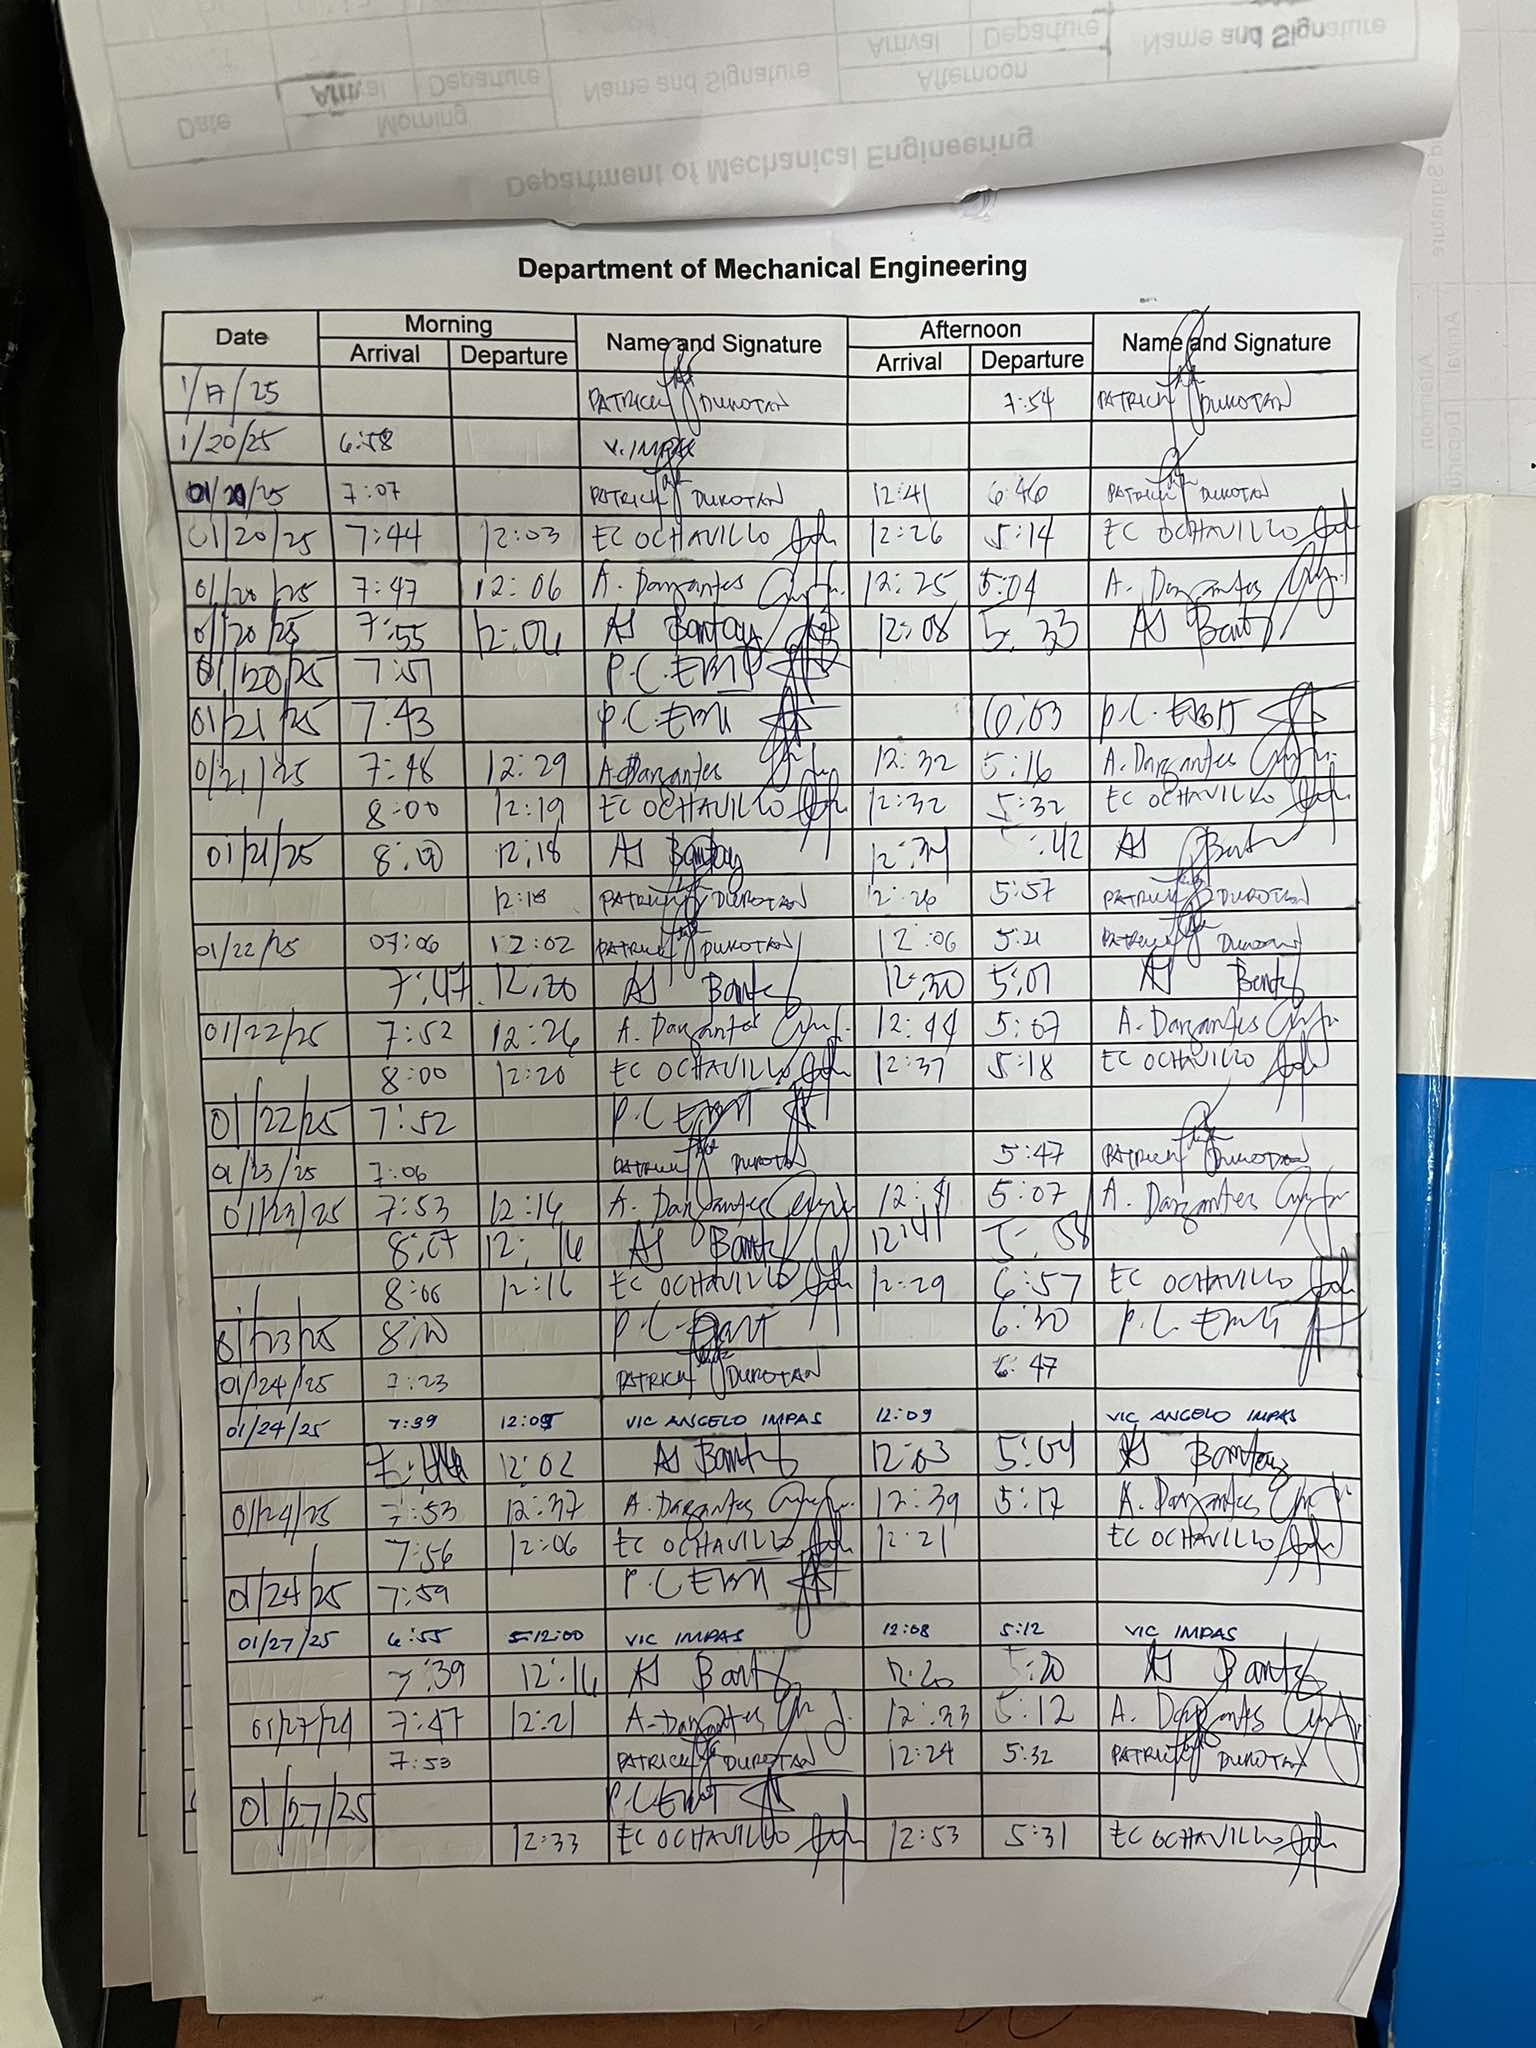 Department of Mechanical Engineering
Date Morning Name and Signature Afternoon Name and Signature
Arrival Departure Arrival Departure
1/17/25 PATRICK DUROTAN 7:54 PATRICK DUROTAN
1/20/25 6:58 V. IMPAS
01/20/25 7:07 PATRICK DUROTAN 12:41 6:46 PATRICK DUROTAN
01/20/25 7:44 12:03 EC OCHAVILLO 12:26 5:14 EC OCHAVILLO
01/20/25 7:47 12:06 A. Darzantes 12:25 5:04 A. Darzantes
01/20/25 7:55 AJ Bantay 12:08 5:33 AJ
01/20/25 7:51 P.C.
01/21/25 7:43 P.C. 6:03 P.C.
01/21/25 7:48 12:29 A. Darzantes 12:32 5:16 A. Darzantes
8:00 12:19 EC OCHAVILLO 12:32 5:32 EC OCHAVILLO
01/21/25 8:00 12:18 AJ Bantay :42 AJ
12:18 PATRICK DUROTAN 12:26 5:57 PATRICK DUROTAN
01/22/25 07:06 12:02 PATRICK DUROTAN 12:06 5:21 PATRICK DUROTAN
7:47 12:20 AJ 12:30 5:01 AJ
01/22/25 7:52 12:26 A. Darzantes 12:44 5:07 A. Darzantes
8:00 12:20 EC OCHAVILLO 12:37 5:18 EC OCHAVILLO
01/22/25 7:52 P.C
01/23/25 7:06 PATRICK DUROTAN 5:47 PATRICK DUROTAN
01/23/25 7:53 12:16 A. Darzantes 12:41 5:07 A. Darzantes
12:16 AJ 12:41 5:58
12:16 EC OCHAVILLO 12:29 6:57 EC OCHAVILLO
01/23/25 P.C. 6:30 P.C.
01/24/25 7:23 PATRICK DUROTAN 6:47
01/24/25 7:39 VIC ANGELO IMPAS 12:09 VIC ANGELO IMPAS
12:02 AJ 12:03 5:04 Bantay
01/24/25 7:53 12:37 A. Darzantes 12:39 5:17 A. Darzantes
7:56 12:06 EC OCHAVILLO 12:21 EC OCHAVILLO
01/24/25 7:59 P.C
01/27/25 6:55 12:00 VIC IMPAS 12:08 5:12 VIC IMPAS
7:39 12:16 AJ 12:20 5:20 AJ
7:47 12:21 A. Darzantes 12:33 5:12 A. Darzantes
7:53 PATRICK DUROTAN 12:24 5:32 PATRICK DUROTAN
01/27/25 P.C
12:33 EC OCHAVILLO 12:53 5:31 EC OCHAVILLO